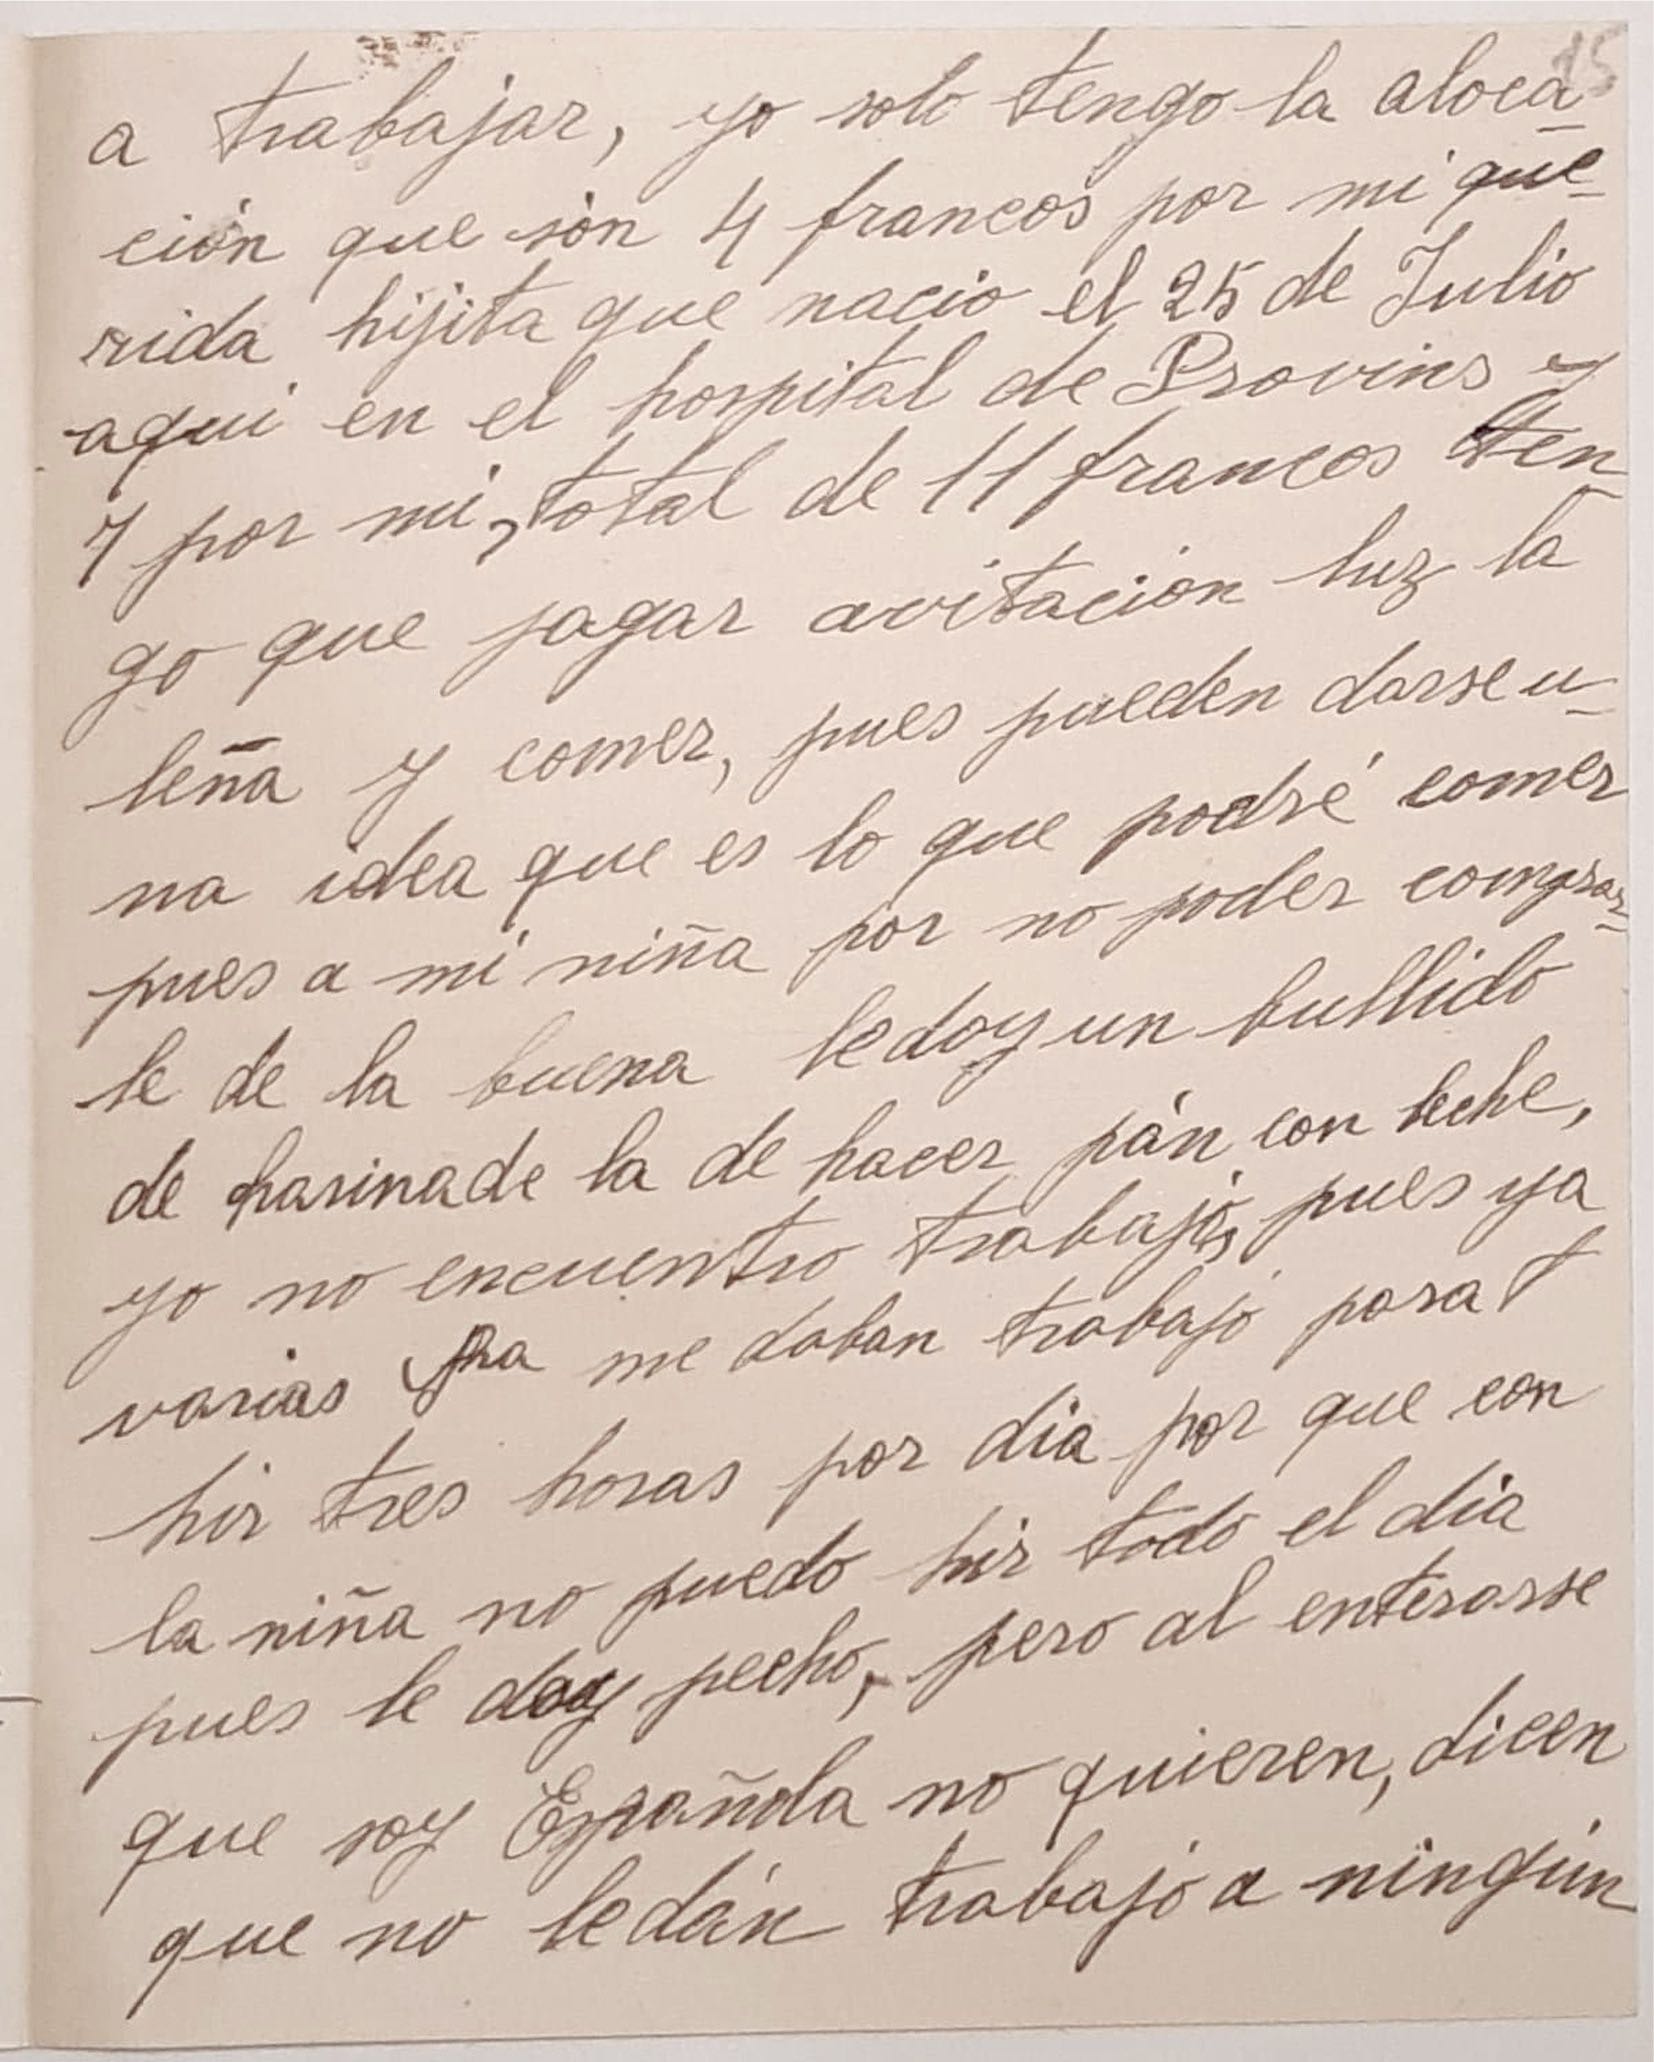 15
a trabajar, yo solo tengo la aloca-
ción que són 4 francos por mi que-
rida hijita que nacio el 25 de Julio
aqui en el hospital de Provins y
7 por mi, total de 11 francos ten-
go que pagar avitación luz la
leña y comer, pues pueden darse u-
na idea que es lo que podré comer
pues a mi niña por no poder comprar-
le de la buena le doy un bullido
de harina de la de hacer pán con leche,
yo no encuentro trabajo, pues ya
varias me daban trabajo para
hir tres horas por dia por que con
la niña no puedo hir todo el dia
pues le doy pecho, pero al enterarse
que soy Española no quieren, dicen
que no le dán trabajo a ningún